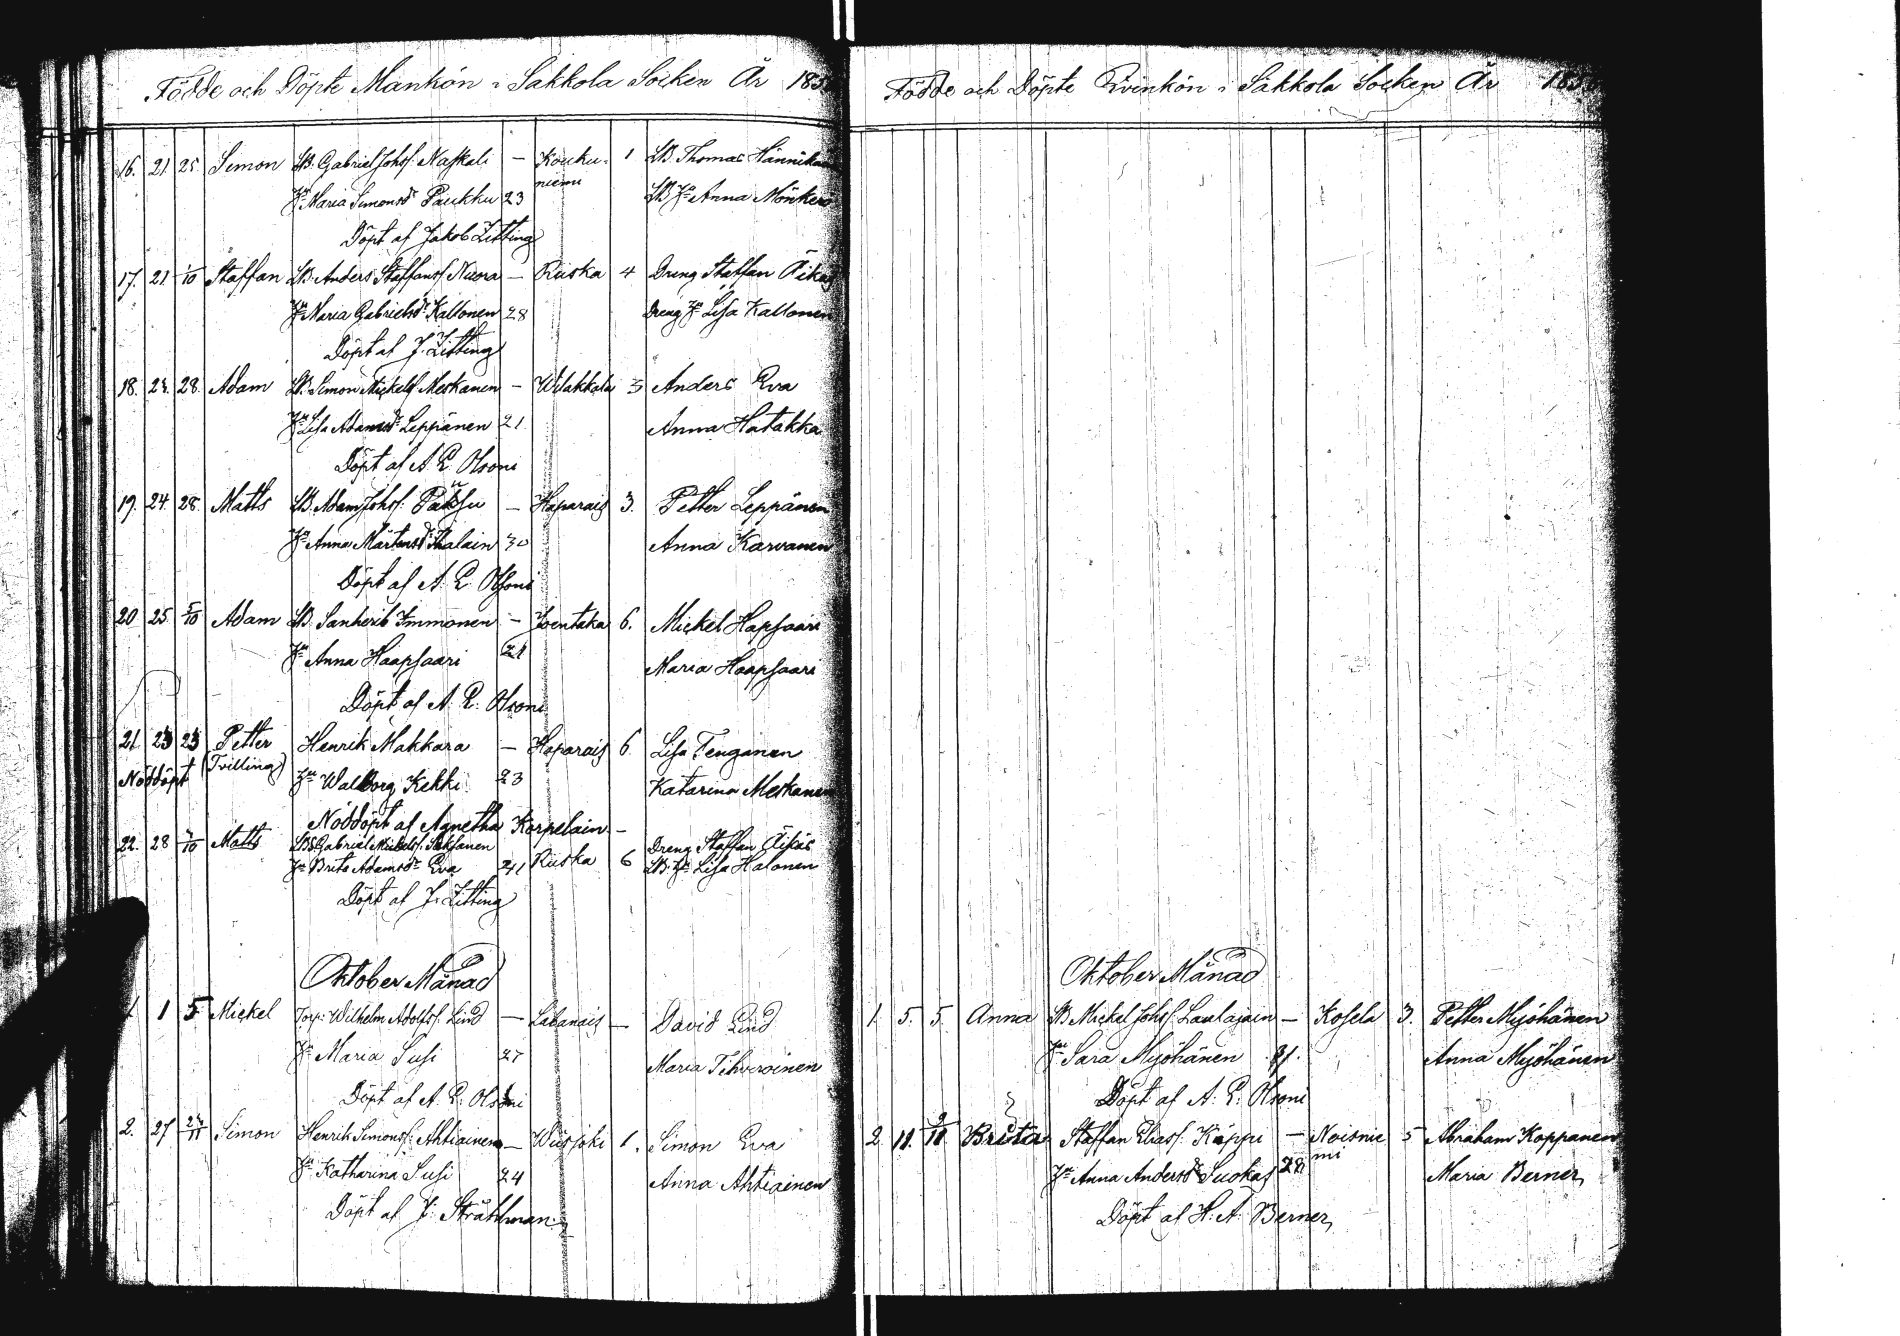 Födde och Döpte Mankön i Sakkola Socken År 185
16. 21. 25. Simon LB. Gabriel Johsf. Naskali — Kouku- 1 LB. Thomas Hännikäi
niemi
Hu Maria Simonsdr Paukku 23 LB Hu Anna Mönkere
Döpt af Jakob Zitting
17. 21. 1/10 Staffan LB. Anders Staffansf. Nuora — Ruska 4 Dreng Staffan Äikäs
Hu Maria Gabrielsdr Kallonen 28 Dreng Hu Lisa Kallonen
Döpt af J. Zitting
18. 23. 28. Adam LB. Simon Mickelsf. Meskanen — Wilakkala 3 Anders Eva
Hu Lisa Adamsdr Leppänen 21 Anna Hatakka
Döpt af A. E. Olsoni
19. 24. 28. Matts LB. Adam Johsf. — Haparais 3. Petter Leppänen
Hu Anna Mårtensdr 30 Anna Karvanen
Döpt af A. E. Olsoni
20 25. 5/10 Adam LB. Sanherib Immonen — Joentaka 6. Mickel Hapsaari
Hu Anna Haapsaari 21 Maria Haapsaari
Döpt af A. E. Olsoni
21 23 23 Petter Henrik Makkara — Haparais 6. Lisa Tenganen
Nöddöpt (Tvilling) Hu Walborg Kekki 23 Katarina Meskanen
Nöddöpt af Agnetha Korpelain —
22. 28 /10 Matts LB Gabriel Mickelsf. Dreng Staffan Äikäs
Hu Brita Adamsdr Eva 41 Ruska 6 LB. Hu Lisa Halonen
Döpt af J. Zitting
Oktober Månad
1. 1 5 Mickel Torp: Wilhelm Adolfsf. Lind — Labanais — David Lind
Hu Maria Susi 27 Maria Tihveroinen
Döpt af A. E. Olsoni
2. 27 /11 Simon Henrik Simonsf. Ahtiainen — Wiisjoki 1. Simon Eva
Hu Katharina Susi 24 Anna Ahtiainen
Döpt af J. Stråhlman
Födde och Döpte Qvinkön i Sakkola Socken År 185
Oktober Månad
1. 5. 5. Anna B Mickel Johsf. Laulajain — Kosela 3. Petter Myöhänen
Hu Sara Myöhänen Anna Myöhänen
Döpt af A. E. Olsoni
2. 11. Brita Staffan Eliasf. Käppi — Noisnie 5 Abraham Koppanen
mi
Hu Anna Andersdr Suokas 28 Maria Berner
Döpt af H. A. Berner